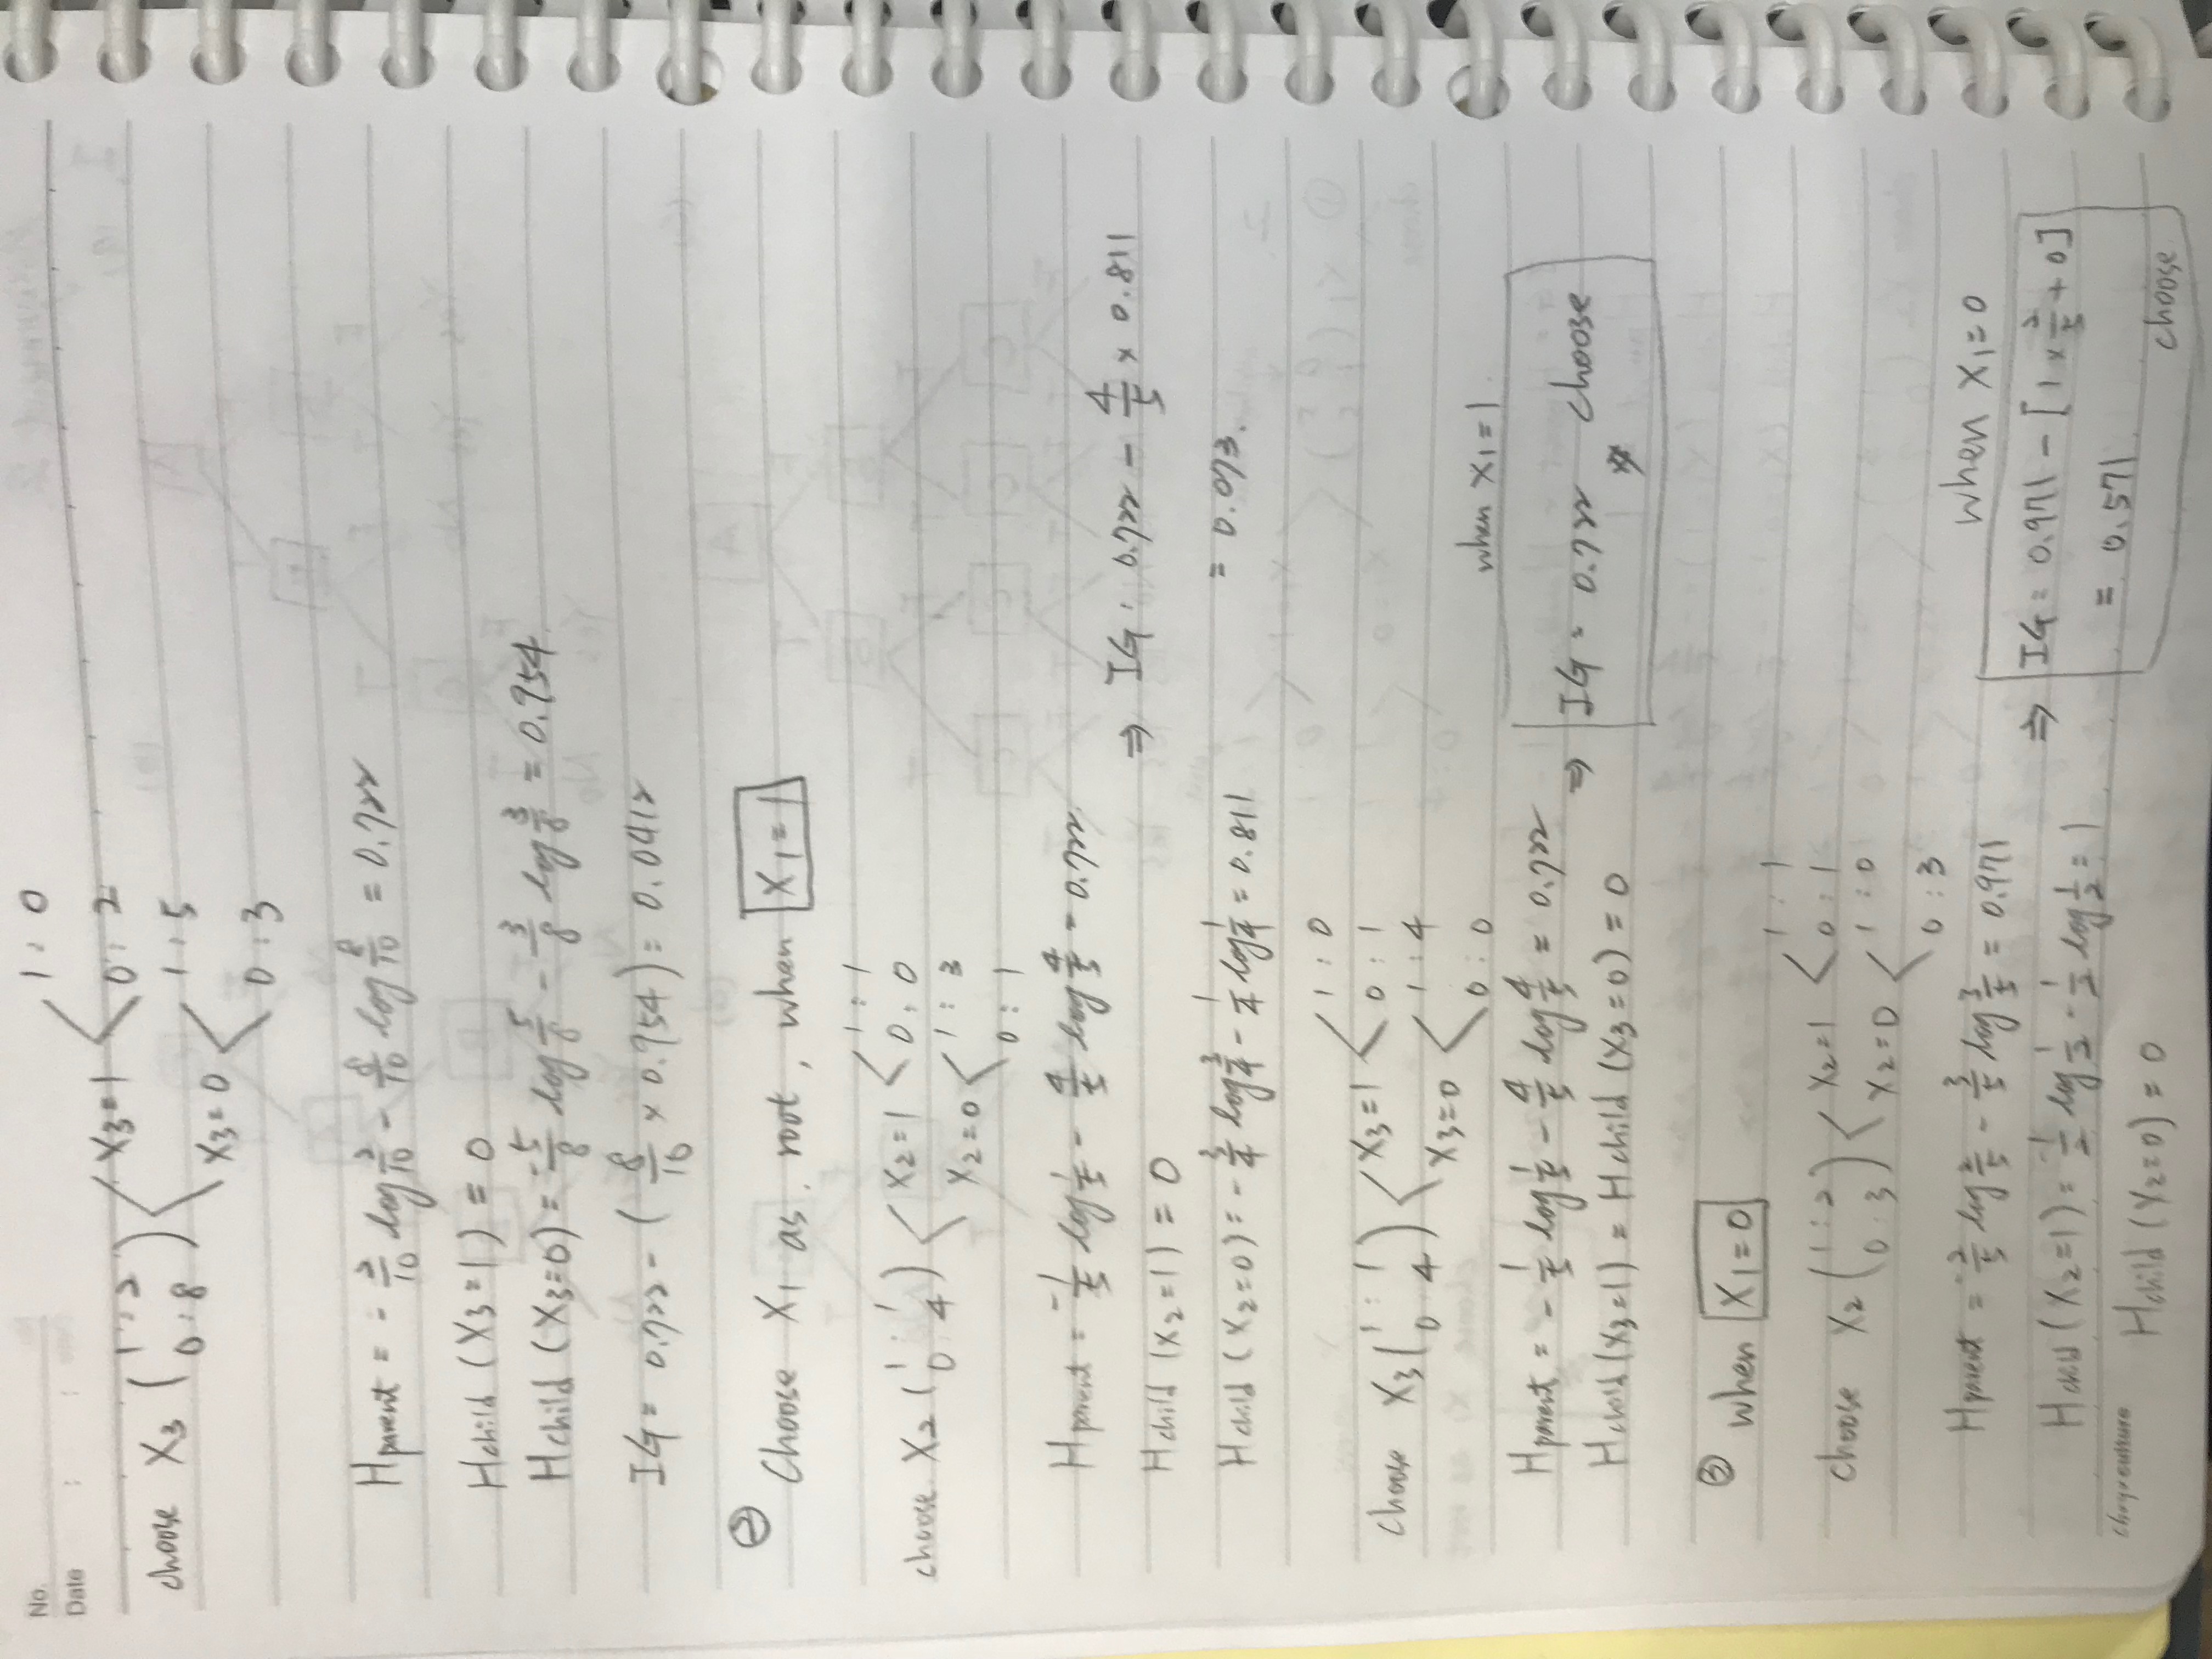 No.
Date : :
choose X3 (1:2 0:8) X3=1 1:0 0:2
X3=0 1:5 0:3
Hparent = - 2/10 log 2/10 - 8/10 log 8/10 = 0.722
Hchild (X3=1) = 0
Hchild (X3=0) = -5/8 log 5/8 - 3/8 log 3/8 = 0.954
IG = 0.722 - ( 8/10 × 0.954 ) = 0.0412
② Choose X1 as root, when X1=1
choose X2 (1:1 0 4) X2=1 1:1 0:0
X2=0 1:3 0:1
Hparent = -1/5 log 1/5 - 4/5 log 4/5 = 0.722
Hchild (X2=1) = 0
⇒ IG: 0.722 - 4/5 × 0.811
Hchild (X2=0) = - 3/4 log 3/4 - 1/4 log 1/4 = 0.811
= 0.073.
Choose X3 (1:1 0 4) X3=1 1:0 0:1
X3=0 1:4 0:0
Hparent = - 1/5 log 1/5 - 4/5 log 4/5 = 0.722
Hchild (X3=1) = Hchild (X3=0) = 0
when X1=1
⇒ IG = 0.722 choose
③ when X1=0
choose X2 (1:2 0:3) X2=1 1:1 0:1
X2=0 1:0 0:3
Hparent = -2/5 log 2/5 - 3/5 log 3/5 = 0.971
Hchild (X2=1) = -1/2 log 1/2 - 1/2 log 1/2 = 1
Hchild (X2=0) = 0
when X1=0
⇒ IG = 0.971 - [1 × 2/5 + 0]
= 0.571
choose